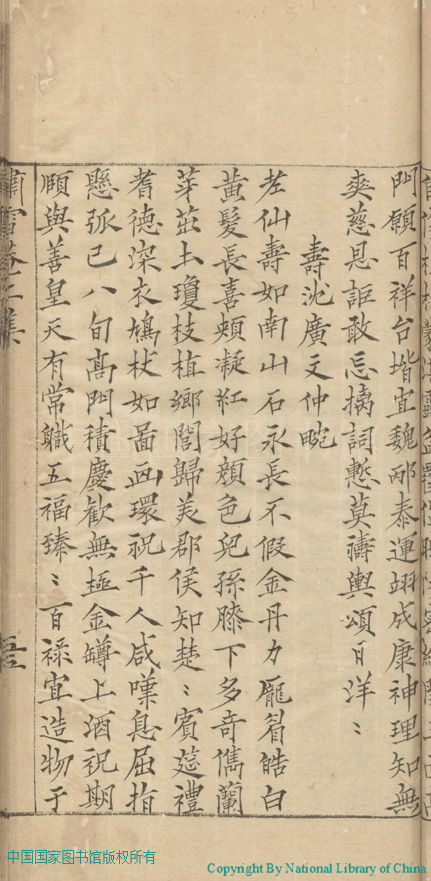 門願百祥台堦宜魏邴泰運翊成康神理知無
爽慈恩詎敢忘摛詞慙莫禱輿頌日洋〻
壽沈廣文仲畹
老仙壽如南山石永長不假金丹力龎眉皓白
黄髮長喜頰凝紅好顔色兒孫膝下多奇儁蘭
芽茁土瓊枝植鄉閭歸美郡侯知楚〻賓筵禮
耆德深衣鳩杖如啚画環祝千人咸嘆息屈指
懸弧已八旬高門積慶歡無極金罇上酒祝期
頤與善皇天有常職五福臻〻百禄宜造物于
中国国家图书馆版权所有
Copyright By National Library of China